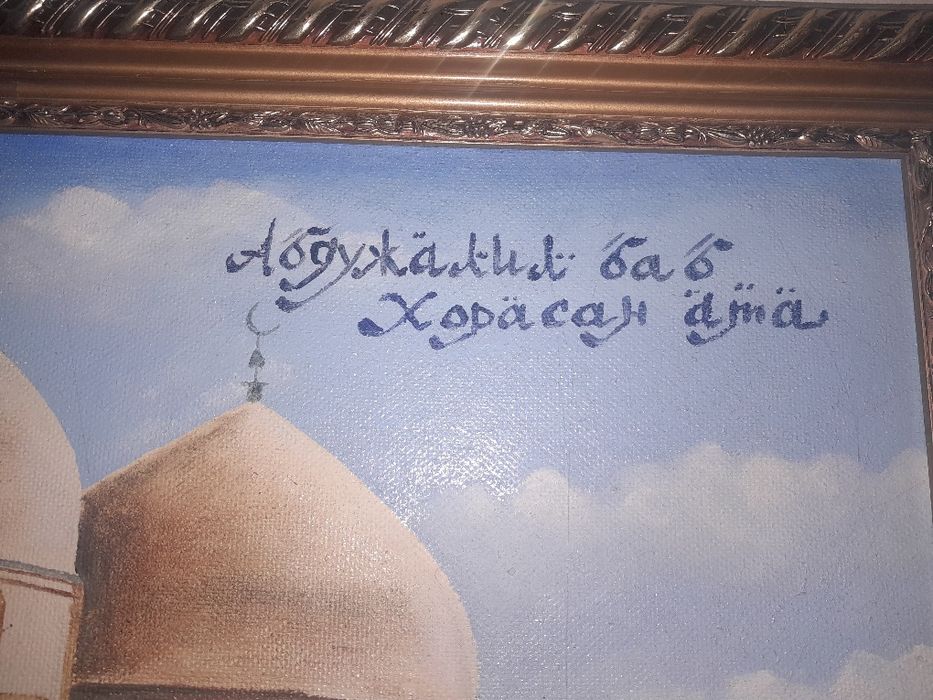 Абдужалил баб
Хорасан ата